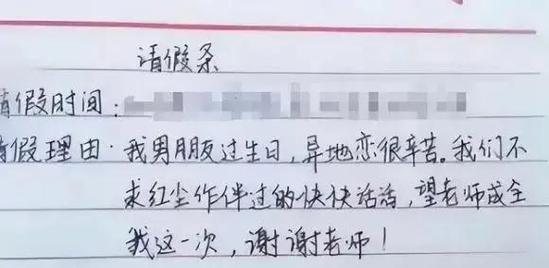 请假条
请假时间：
请假理由：我男朋友过生日，异地恋很辛苦。我们不
求红尘作伴过的快快活活，望老师成全
我这一次，谢谢老师！